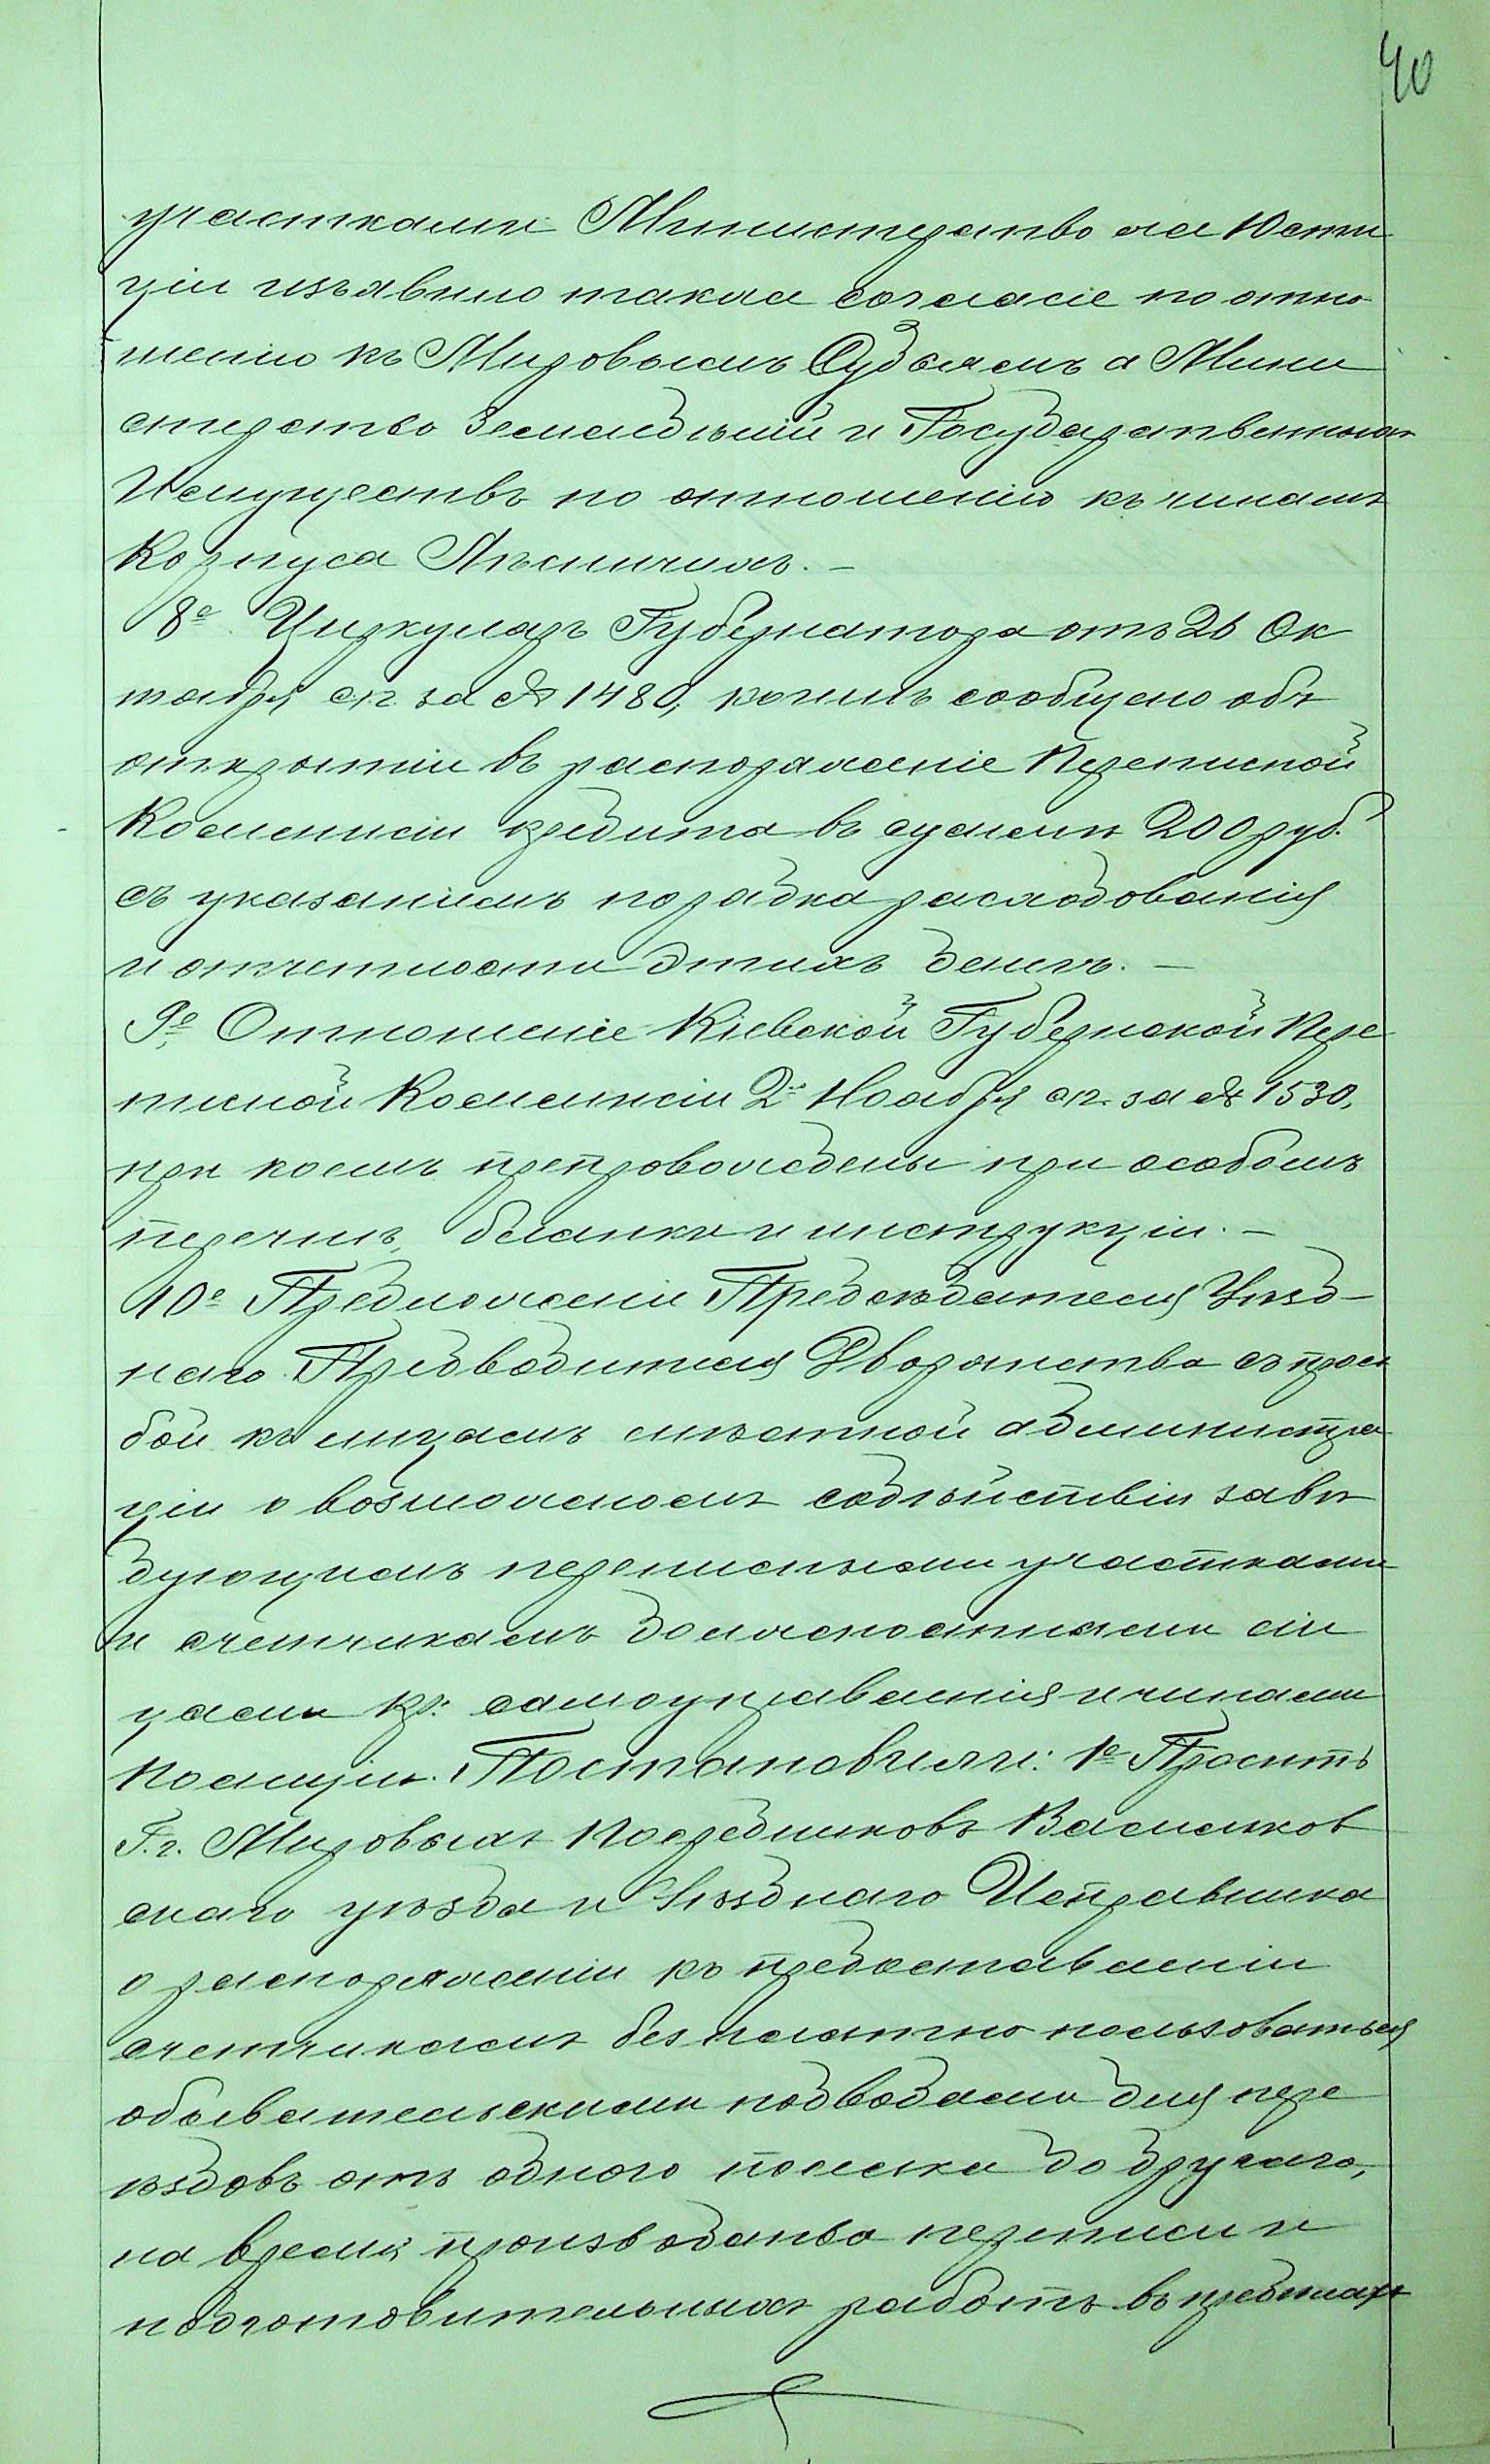 40
участками Министерство же Юсти
ціи изъявило такое согласіе по отно
шенію къ Мировымъ Судьямъ а Мини
стерство Земледѣлій и Государственныхъ
Имуществъ по отношенію къ чинамъ
Корпуса Лѣсничихъ. –
8е Циркуляръ Губернатора отъ 26 Ок
тября с.г. за № 1480, коимъ сообщено объ
открытіи въ распоряженіе Переписной
Коммисіи кредита въ суммѣ 200 руб.
съ указаніемъ порядка расходованія
и отчетности этихъ денегъ. –
9е Отношеніе Кіевской Губернской Пере
писной Коммисіи 2го Ноября с.г. за № 1530,
при коемъ препровождены при особомъ
перечнѣ, бланки и инструкціи. –
10е Предложеніи Предсѣдателя Уѣзд-
наго Предводителя Дворянства съ прось
бой къ лицамъ мѣстной администра
ціи о возможномъ содѣйствіи завѣ
дующимъ переписными участками
и счетчикамъ должностными ли
цами кр. самоуправленія и чинами
полиціи. Постановили: 1е Просить
Г.г. Мировыхъ Посредниковъ Васильков
скаго уѣзда и Уѣзднаго Исправника
о распоряженіи къ предоставленіи
счетчикамъ безплатно пользоваться
обывательскими подводами для пере
ѣздовъ отъ одного поселка до другаго,
на время производства переписи и
подготовительныхъ работъ въ предѣлахъ